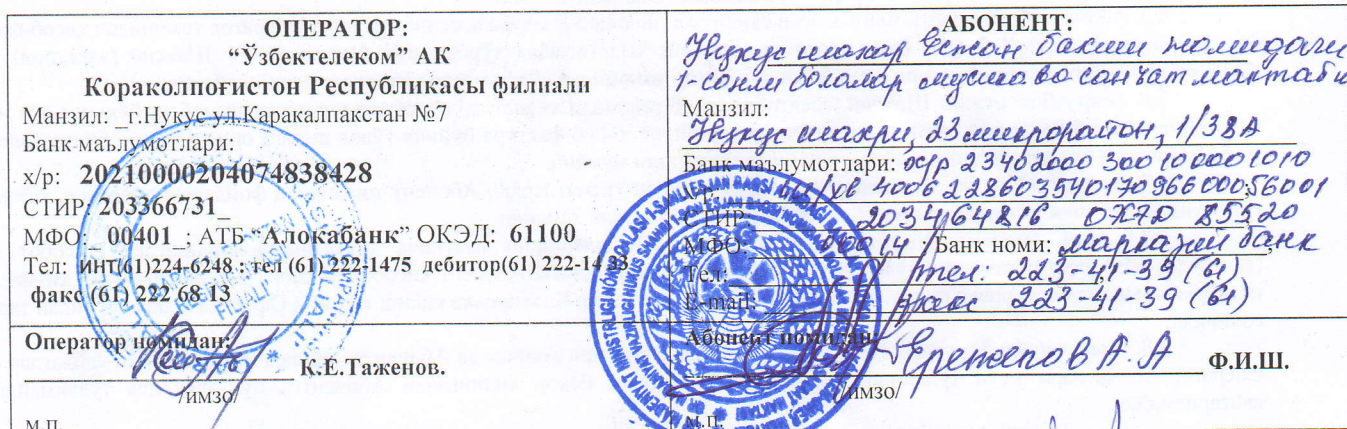 ОПЕРАТОР:
“Ўзбектелеком” АК
Кораколпоғистон Республикаси филиали
Манзил: _г.Нукус ул.Каракалпакстан №7
Банк маълумотлари:
х/р: 20210000204074838428
СТИР: 203366731_
МФО:_ 00401_; АТБ “Алокабанк” ОКЭД: 61100
Тел: ИНТ(61)224-6248 ; тел (61) 222-1475 дебитор(61) 222-14 33
факс (61) 222 68 13
Оператор номидан:
К.Е.Таженов.
/имзо/
м.п.
АБОНЕНТ:
Нукус шахар Ешжан бакши номидаги
1-сонли болалар мусика ва санъат мактаби
Манзил:
Нукус шахри, 23 микрорайон, 1/38А
Банк маълумотлари: х/р 23402000300100001010
х/р: ш/хв 400622860354017096600056001
СТИР: 203464816 ОКЭД 85520
МФО: 00014 ; Банк номи: Марказий банк
Тел: тел: 223-41-39 (61)
E-mail: факс 223-41-39 (61)
Абонент номидан
Еренепов А.А Ф.И.Ш.
/имзо/
м.п.